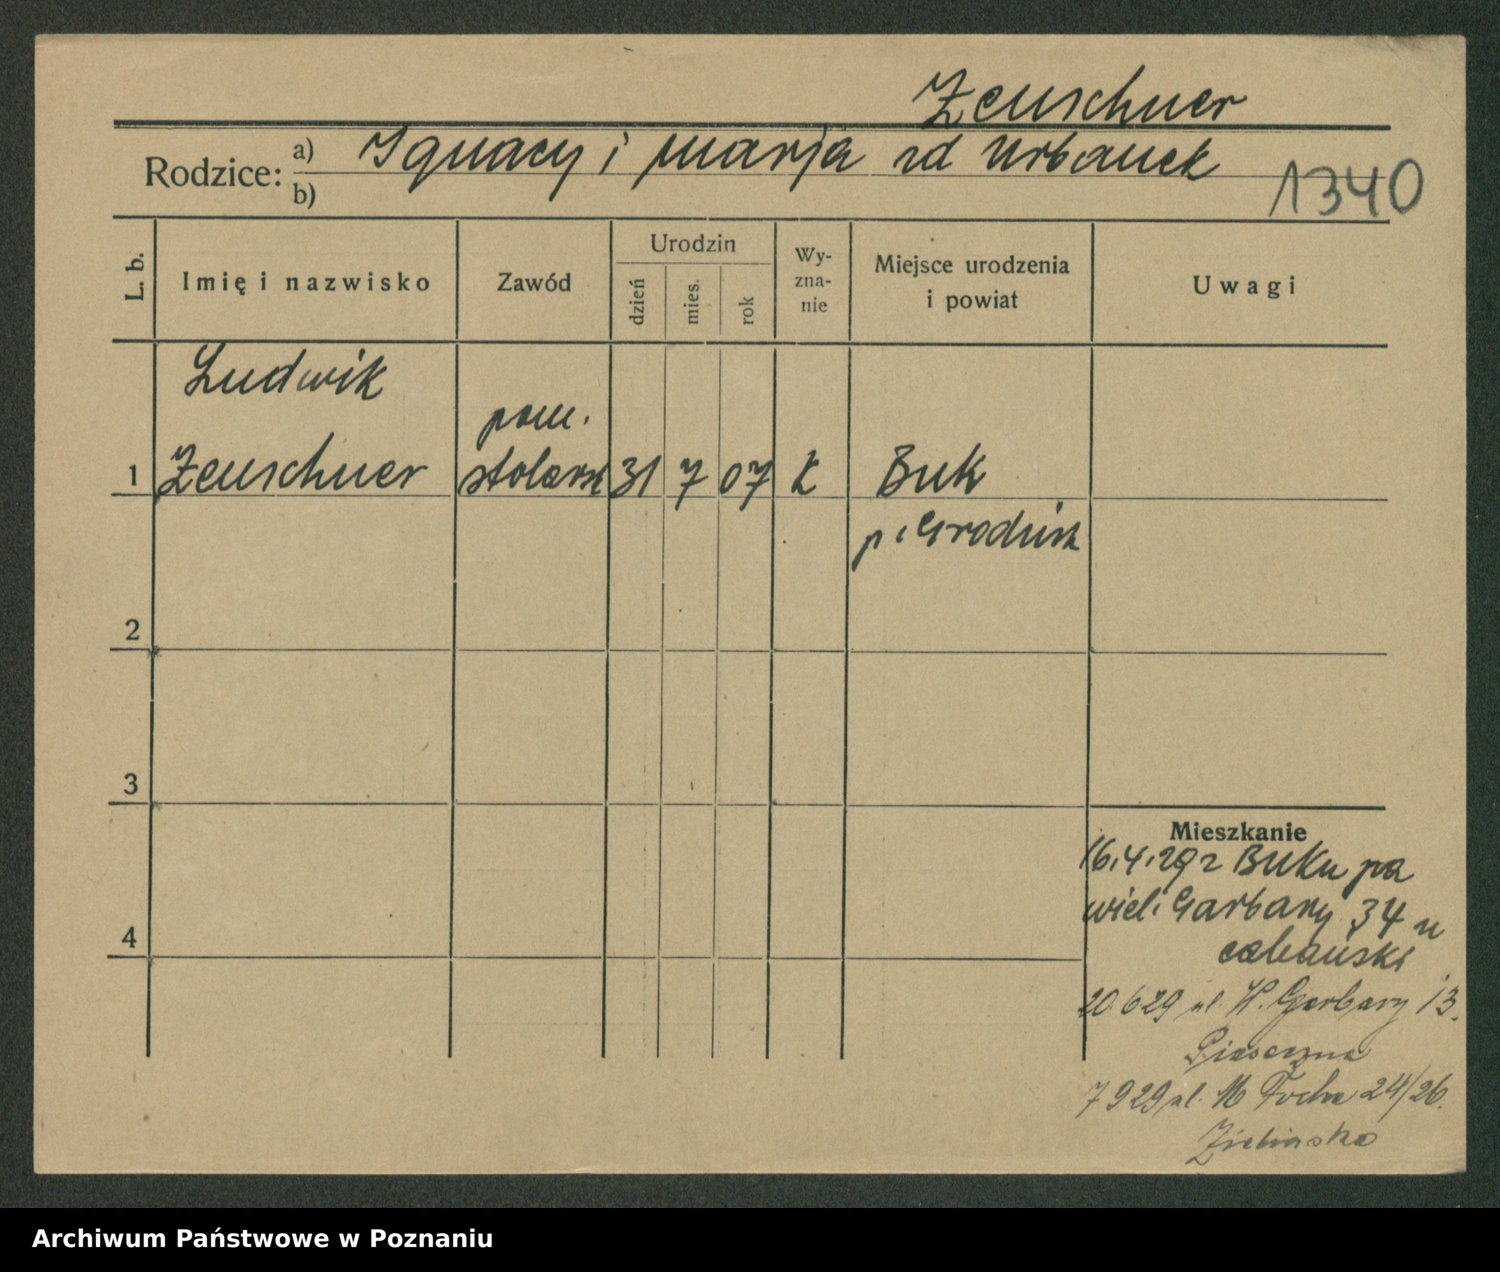 Zeuschner
Rodzice: a) Ignacy i Marja zd Urbanek
b)
1340
L. b.
Imię i nazwisko
Zawód
Urodzin
dzień
mies.
rok
Wy-
zna-
nie
Miejsce urodzenia
i powiat
Uwagi
Ludwik
pom.
1 Zeuschner stolarsk 31 7 07 k Buk
p. Grodzisk
2
3
4
Mieszkanie
16.4.29 z Buku na
wiel. Garbary 34 u
20 6 29 ul. W. Garbary 13.
Piaseczna
7 9 29 ul. M Focha 24/26.
Zielińska
Archiwum Państwowe w Poznaniu